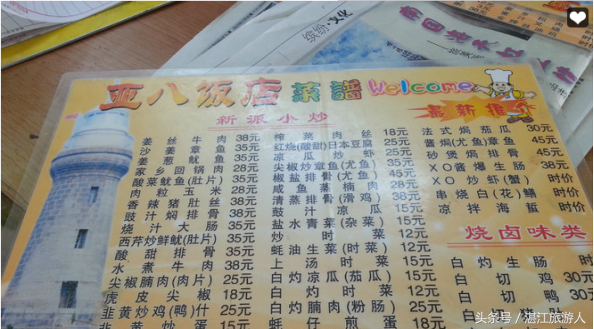 缤纷·文化
亚八饭店 菜譜 Welcome
新派小炒
最新推介
姜丝牛肉 38元
沙姜章鱼 35元
姜葱鱿鱼 35元
家乡回锅肉 28元
酸菜鱿鱼(肚片) 35元
肉粒玉米 28元
香辣猪肚丝 38元
豉汁焖排骨 38元
烧汁大肠 35元
西芹炒鲜鱿(肚片) 35元
酸甜排骨 35元
水煮牛肉 38元
尖椒腩肉(肚片) 25元
虎皮尖椒 18元
韭黄炒鸡(鸭)什 25元
韭黄炒蛋 15元
榨菜肉丝 18元
红烧(酸甜)日本豆腐 25元
凉瓜炒虾 25元
尖椒炒章鱼(尤鱼) 35元
椒盐排骨(尤鱼) 45元
咸鱼蒸腩肉 28元
清蒸排骨(滑鸡) 38元
豉汁凉瓜 15元
盐水青菜(杂菜) 15元
炒时菜 12元
蚝油生菜(时菜) 12元
上汤时菜 15元
白灼凉瓜(茄瓜) 15元
白灼时菜 12元
白灼腩肉(粉肠) 25元
蚝仔煎蛋 18元
法式焗茄瓜 30元
酱焗(尤鱼)章鱼 45元
砂煲焗排骨 45元
XO酱爆生肠 38元
XO炒虾(蟹) 时价
串烧白(花)鳝 时价
凉拌海蜇 时价
烧卤味类
白灼生肠 时
白切鸡 30元
白切鸭 30
白切
头条号 / 湛江旅游人